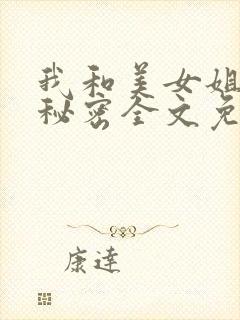 我和美女姐
秘密全文免
康達